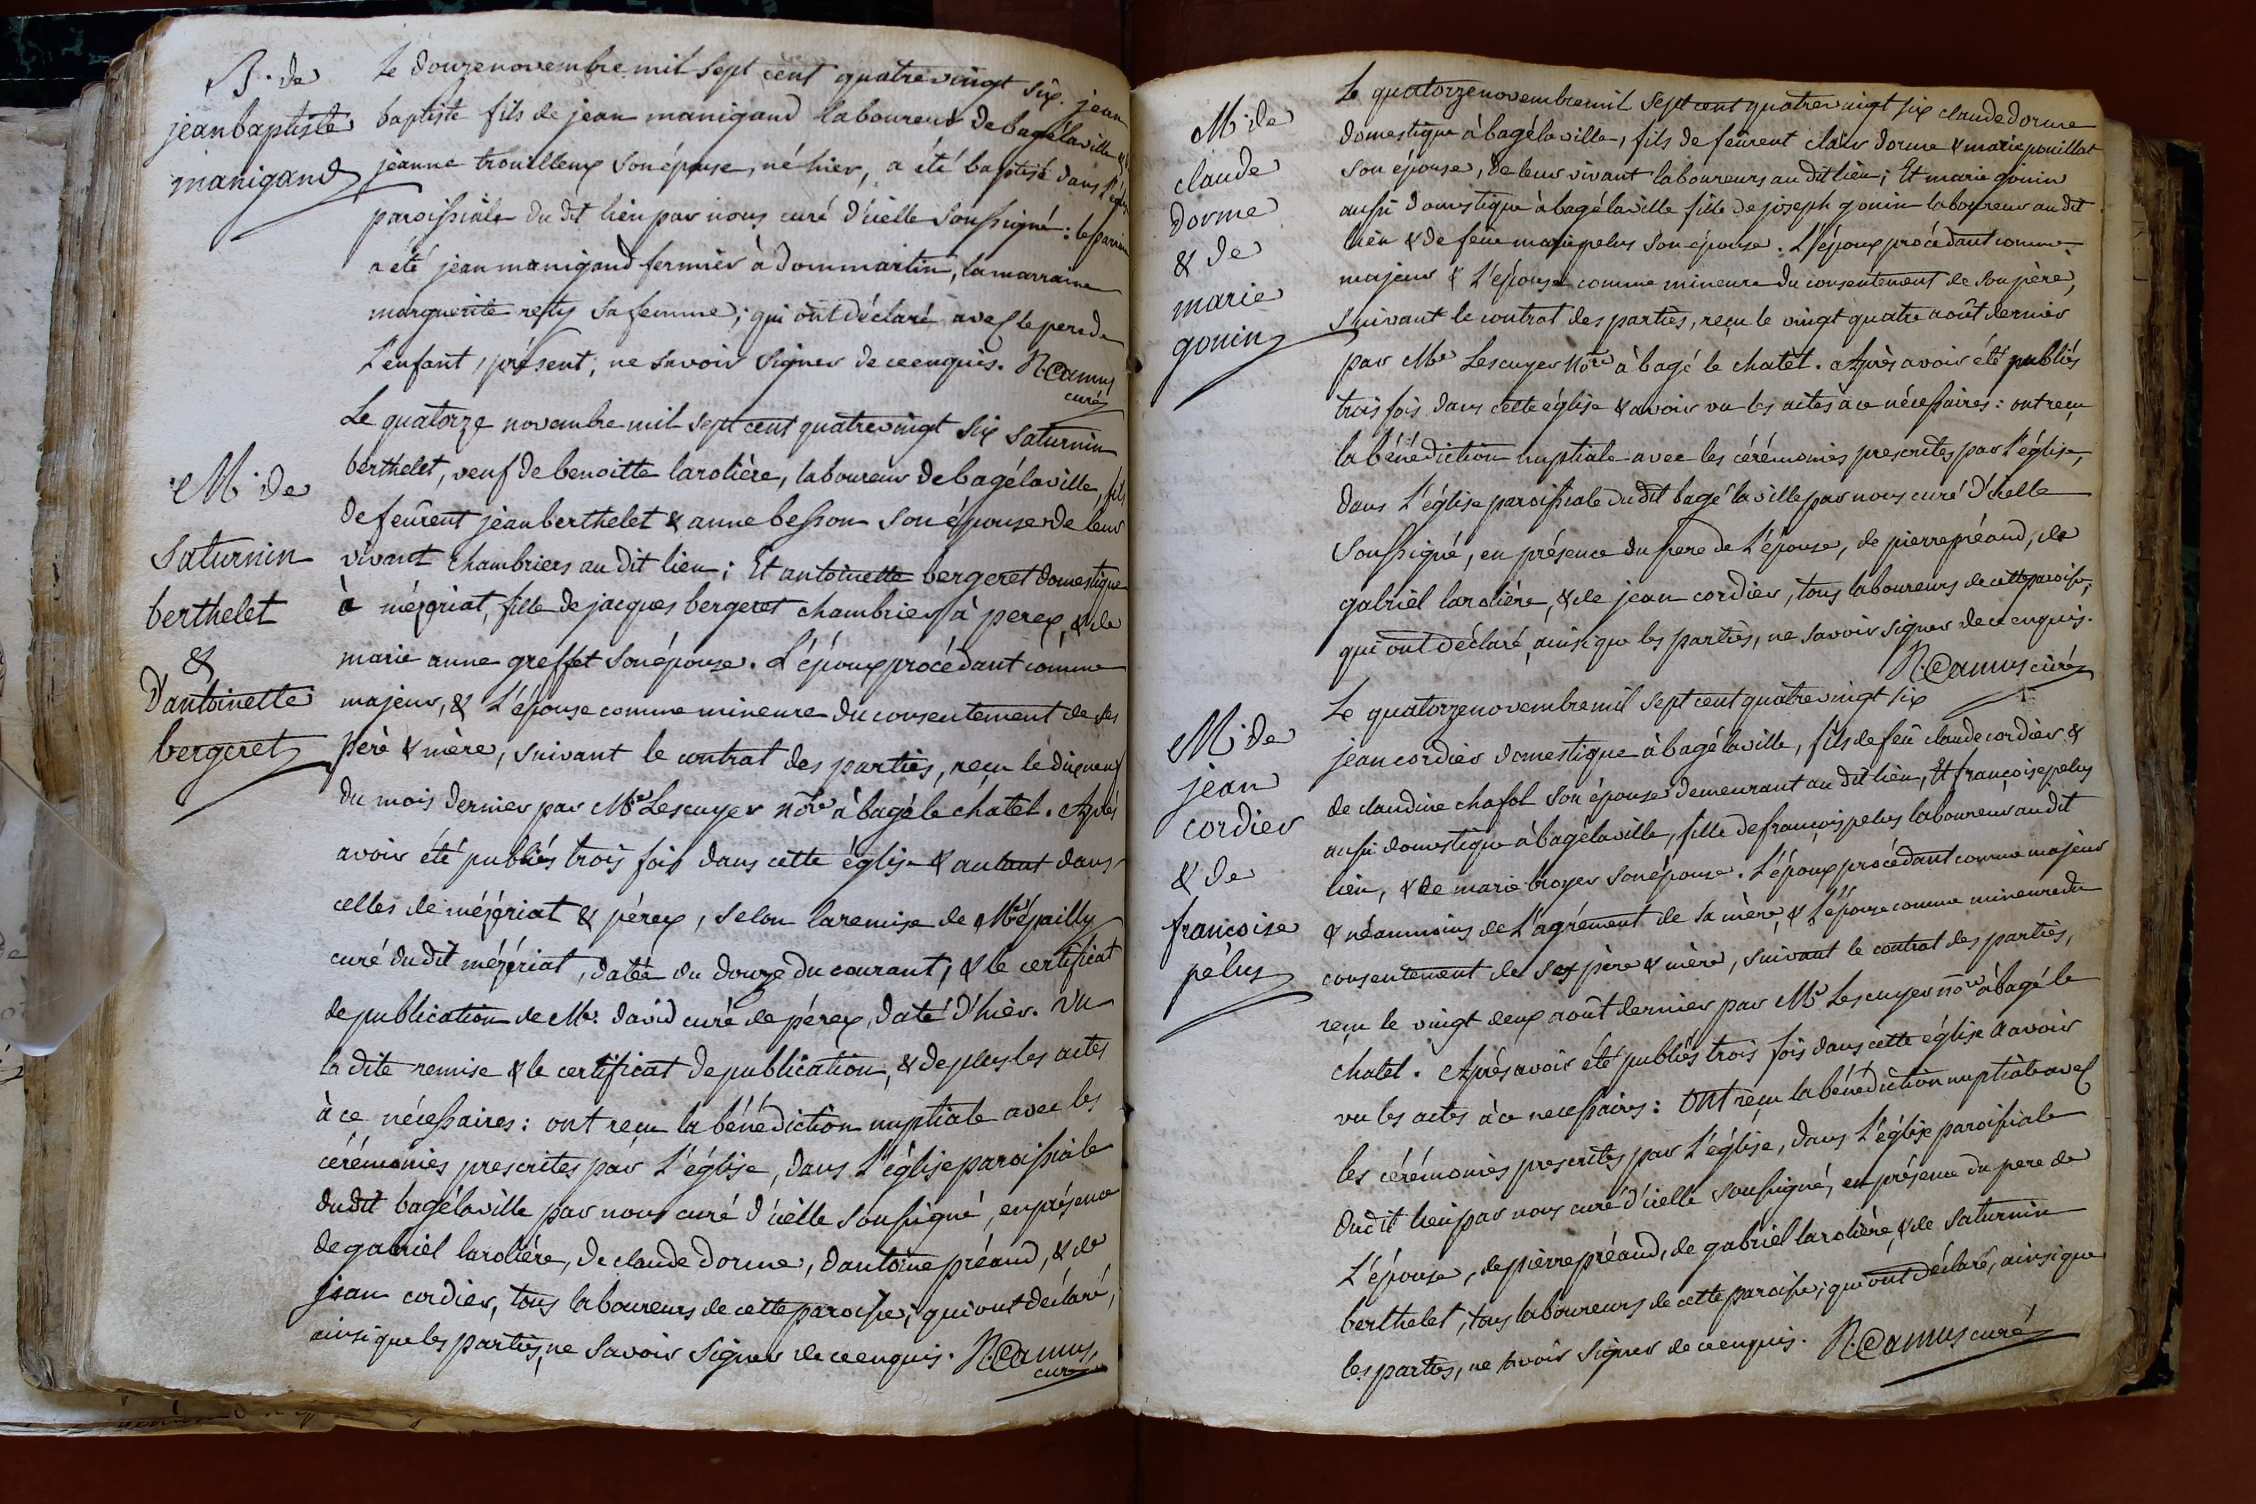 B. de
jean baptiste
manigand
Le douze novembre mil sept cent quatre vingt six. jean
baptiste fils de jean manigand laboureur de bagélaville &
jeanne trouilleux son épouse, né hier, a été baptisé dans l'église
paroissiale du dit lieu par nous curé d'icelle soussigné: le parrain
a été jean manigand fermier à dommartin, la marraine
marguerite resty sa femme; qui ont déclaré avec le pere de
L'enfant, présent, ne savoir signer de ce enquis. N. Camus
curé
M. de
Saturnin
berthelet
&
D'antoinette
bergeret
Le quatorze novembre mil sept cent quatre vingt six saturnin
berthelet, veuf de benoitte larolière, laboureur de bagélaville, fils
de feûrent jean berthelet & anne besson son épouse de leur
vivant chambriers au dit lieu; Et antoinette bergeret domestique
à mézériat, fille de jacques bergeret chambrier à perex, & de
marie anne greffet son épouse. L'époux procédant comme
majeur, & L'épouse comme mineure du consentement de ses
père & mère, suivant le contrat des parties, reçu le dix neuf
du mois dernier par Me Lescuyer nore à bagé le châtel. Après
avoir été publiés trois fois dans cette église & autant dans
celles de mézériat & pérex, selon la remise de Mre épailly
curé du dit mézériat, datée du douze du courant, & le certificat
de publication de Mre david curé de pérex, daté d'hier. Vu
la dite remise & le certificat de publication, & de plus les actes
à ce nécessaires: ont reçu la bénédiction nuptiale avec les
cérémonies prescrites par L'église, dans L'église paroissiale
dudit bagélaville par nous curé d'icelle soussigné, en présence
de gabriel larolière, de claude dorme, d'antoine préaud, & de
jean cordier, tous laboureurs de cette paroisse; qui ont déclaré,
ainsi que les parties, ne savoir signer de ce enquis. N. Camus,
curé
M. de
claude
dorme
& de
marie
gonin
Le quatorze novembre mil sept cent quatre vingt six claude dorme
domestique à bagélaville, fils de feûrent clair dorme & marie pouillat
son épouse, de leur vivant laboureurs au dit lieu; Et marie gonin
aussi domestique à bagélaville fille de joseph gonin laboureur au dit
lieu & de feüe marie pelus son épouse. L'époux procédant comme
majeur & L'épouse comme mineure du consentement de son père,
suivant le contrat des parties, reçu le vingt quatre août dernier
par Me Lescuyer Nore à bagé le chatel. Après avoir été publiés
trois fois dans cette église & avoir vu les actes à ce nécessaires: ont reçu
la bénédiction nuptiale avec les cérémonies prescrites par L'église,
dans L'église paroissiale du dit bagé la ville par nous curé d'icelle
soussigné, en présence du pere de L'épouse, de pierre préaud, de
gabriel larolière, & de jean cordier, tous laboureurs de cette paroisse,
qui ont déclaré, ainsi que les parties, ne savoir signer de ce enquis.
N. Camus curé
M. de
jean
cordier
& de
françoise
pélus
Le quatorze novembre mil sept cent quatre vingt six
jean cordier domestique à bagélaville, fils de feü claude cordier &
de claudine chafol son épouse demeurant au dit lieu, Et françoise pelus
aussi domestique à bagelaville, fille de françois pelus laboureur au dit
lieu, & de marie broyer son épouse. L'époux procédant comme majeur
& néanmoins de L'agrément de sa mère, & L'épouse comme mineure du
consentement de ses père & mère, suivant le contrat des parties,
reçu le vingt deux août dernier par Me Lescuyer nore à bagé le
chatel. Après avoir été publiés trois fois dans cette église & avoir
vu les actes à ce necessaires: Ont reçu la bénédiction nuptiale avec
les cérémonies prescrites par L'église, dans L'église paroissiale
dudit lieu par nous curé d'icelle soussigné, en présence du pere de
L'épouse, de pierre préaud, de gabriel larolière, & de saturnin
berthelet, tous laboureurs de cette paroisse; qui ont déclaré, ainsi que
les parties, ne savoir signer de ce enquis. N. Camus curé